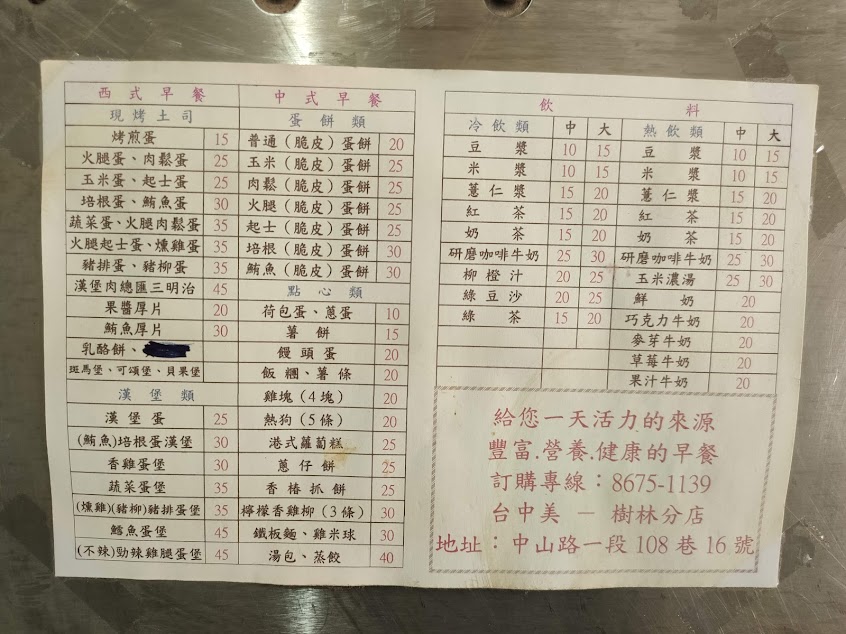 西式早餐
現烤土司
烤煎蛋 15
火腿蛋、肉鬆蛋 25
玉米蛋、起士蛋 25
培根蛋、鮪魚蛋 30
蔬菜蛋、火腿肉鬆蛋 35
火腿起士蛋、燻雞蛋 35
豬排蛋、豬柳蛋 35
漢堡肉總匯三明治 45
果醬厚片 20
鮪魚厚片 30
乳酪餅、
斑馬堡、可頌堡、貝果堡
漢堡類
漢堡蛋 25
(鮪魚)培根蛋漢堡 30
香雞蛋堡 30
蔬菜蛋堡 35
(燻雞)(豬柳)豬排蛋堡 35
鱈魚蛋堡 45
(不辣)勁辣雞腿蛋堡 45
中式早餐
蛋餅類
普通(脆皮)蛋餅 20
玉米(脆皮)蛋餅 25
肉鬆(脆皮)蛋餅 25
火腿(脆皮)蛋餅 25
起士(脆皮)蛋餅 25
培根(脆皮)蛋餅 30
鮪魚(脆皮)蛋餅 30
點心類
荷包蛋、蔥蛋 10
薯餅 15
饅頭蛋 20
飯糰、薯條 20
雞塊(4塊) 20
熱狗(5條) 20
港式蘿蔔糕 25
蔥仔餅 25
香椿抓餅 25
檸檬香雞柳(3條) 30
鐵板麵、雞米球 30
湯包、蒸餃 40
飲料
冷飲類 中 大
豆漿 10 15
米漿 10 15
薏仁漿 15 20
紅茶 15 20
奶茶 15 20
研磨咖啡牛奶 25 30
柳橙汁 20 25
綠豆沙 20 25
綠茶 15 20
熱飲類 中 大
豆漿 10 15
米漿 10 15
薏仁漿 15 20
紅茶 15 20
奶茶 15 20
研磨咖啡牛奶 25 30
玉米濃湯 25 30
鮮奶 20
巧克力牛奶 20
麥芽牛奶 20
草莓牛奶 20
果汁牛奶 20
給您一天活力的來源
豐富.營養.健康的早餐
訂購專線：8675-1139
台中美 － 樹林分店
地址：中山路一段108巷16號